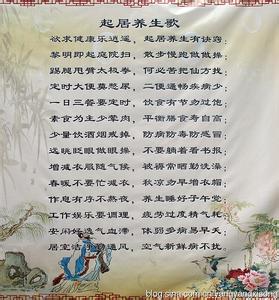 起居养生歌
欲求健康乐逍遥，起居养生有诀窍；
黎明即起庭院扫，散步慢跑做做操；
踢腿甩臂太极拳，何必苦把仙方找；
定时大便莫憋尿，二便通畅疾病少；
一日三餐要定时，饮食有节勿过饱；
素食为主少荤肉，平衡膳食寿自高；
少量饮酒烟戒掉，防病防毒防感冒；
远眺眨眼做眼操，不要躺着看书报；
增减衣服随气候，被褥常晒勤洗澡；
春暖不要忙减衣，秋凉勿早增衣帽；
作息有序不熬夜，养生睡好子午觉；
工作娱乐要调理，疲劳过度精气耗；
安闲好逸气血滞，体弱多病易早夭；
居室洁 勤通风，空气新鲜病不扰。
blog.sina.com.cn/yangyandiadnj